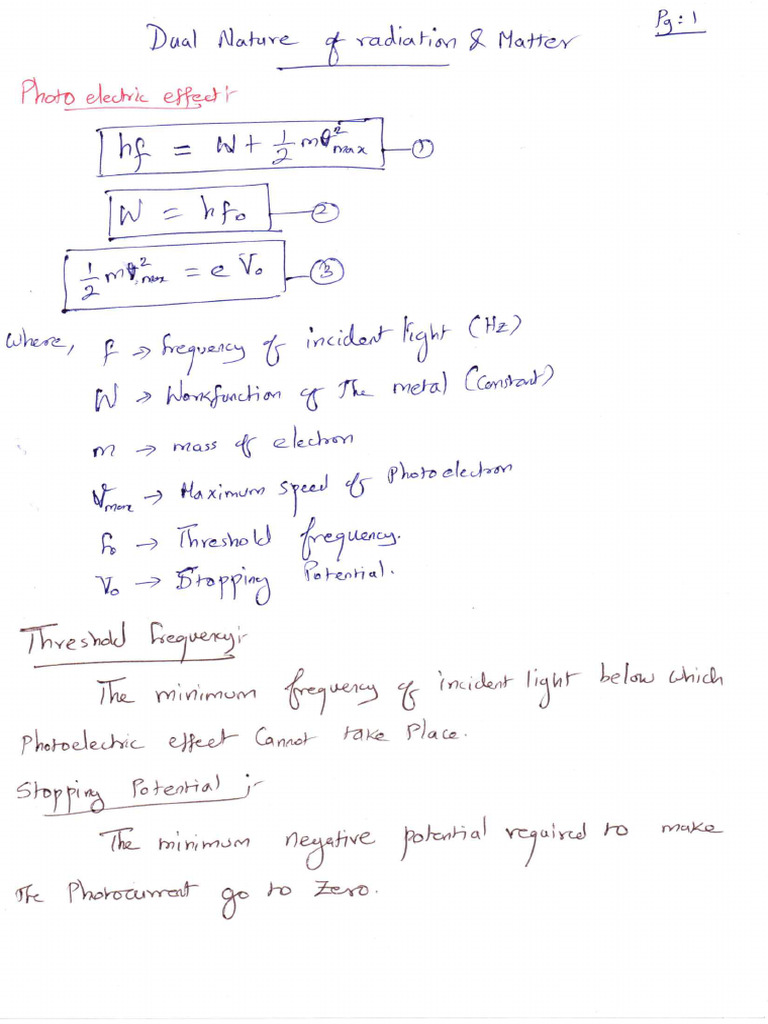 Pg: 1
Dual Nature of radiation & Matter
Photo electric effect:-
hf = W + 1/2 mv²max — ①
W = hf₀ — ②
1/2 mv²max = e V₀ — ③
Where, f → frequency of incident light (Hz)
W → Workfunction of The metal (Constant)
m → mass of electron
Vmax → Maximum speed of Photoelectron
f₀ → Threshold frequency.
V₀ → Stopping Potential.
Threshold frequency:-
The minimum frequency of incident light below which
Photoelectric effect Cannot take Place.
Stopping Potential :-
The minimum negative potential required to make
The Photocurrent go to Zero.